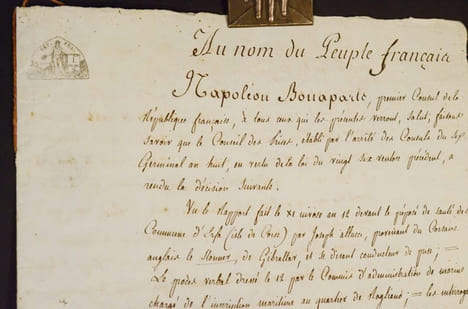 Au nom du Peuple français
Napoléon Bonaparte, premier Consul de la
République française, à tous ceux qui les présentes verront, Salut; faisons
savoir que le Conseil des Prises, établi par l'arrêté des Consuls du Six
Germinal an huit, en vertu de la loi du vingt six ventôse précédent, a
rendu la décision Suivante.
Vu le Rapport fait le XI nivose an 12 devant le préposé de santé de
Commune d'Ersa (isle de Corse) par Joseph , provenant du Corsaire
anglais le , de Gibraltar, et se disant conducteur de prise; =
Le procès verbal dressé le 12 par le Commis d'administration de marine
chargé de l'inscription maritime au quartier de Rogliano; = les interrog